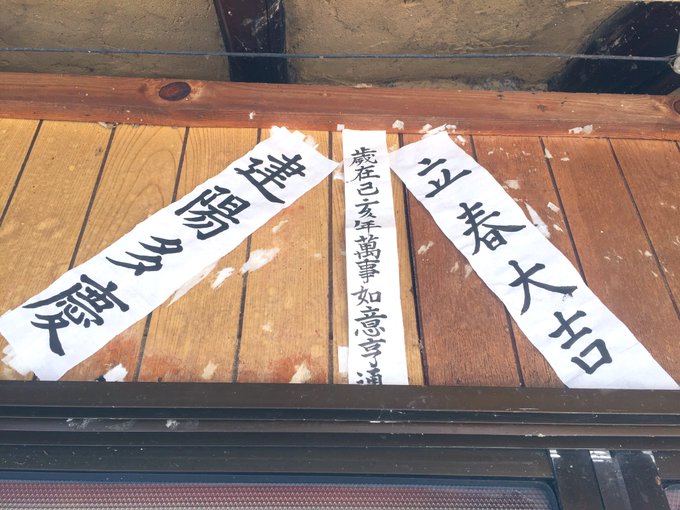 立春大吉
歲在己亥年萬事如意亨通
建陽多慶